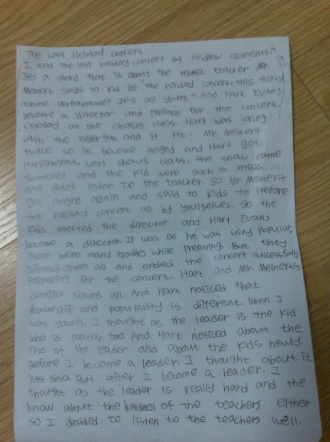 The Last Holiday Concert
I read "The last holiday concert by Andrew clements."
It's a story that is about the music teacher Mr.
Meinert said to kid "the holiday concert, this
performance? It's all yours." And Hart Evans
become a director and prepare for the concert.
oneday at the chorus class, Hart was
with the rubber band and it hit Mr. Meinert
twice. So he became angry and Hart got
punishment. Next chorus class, the snow came
and the kid were such a mess
and didn't listen to the teacher. So Mr. Meinert
got angry again and said to kids to prepare
the holiday concert all by yourselves. So the
kids elected the director and Hart Evans
become a director. It was as he was very popular.
There were many troubles while preparing. But they
them all and ended the concert successfully
preparing for the concert, Hart and Mr. Meinert's
conflict solved all. And Hart noticed that
leadership and popularity is different. When I
was young, I thought as the leader is the kid
who is popular too. And Hart noticed about the
role of the leader and about the kids newly.
Before I become a leader, I thought about it
just soso. But after I become a leader, I
thought as the leader is really hard and the
know about the hardness of the teachers either
so I decided to listen to the teachers well.